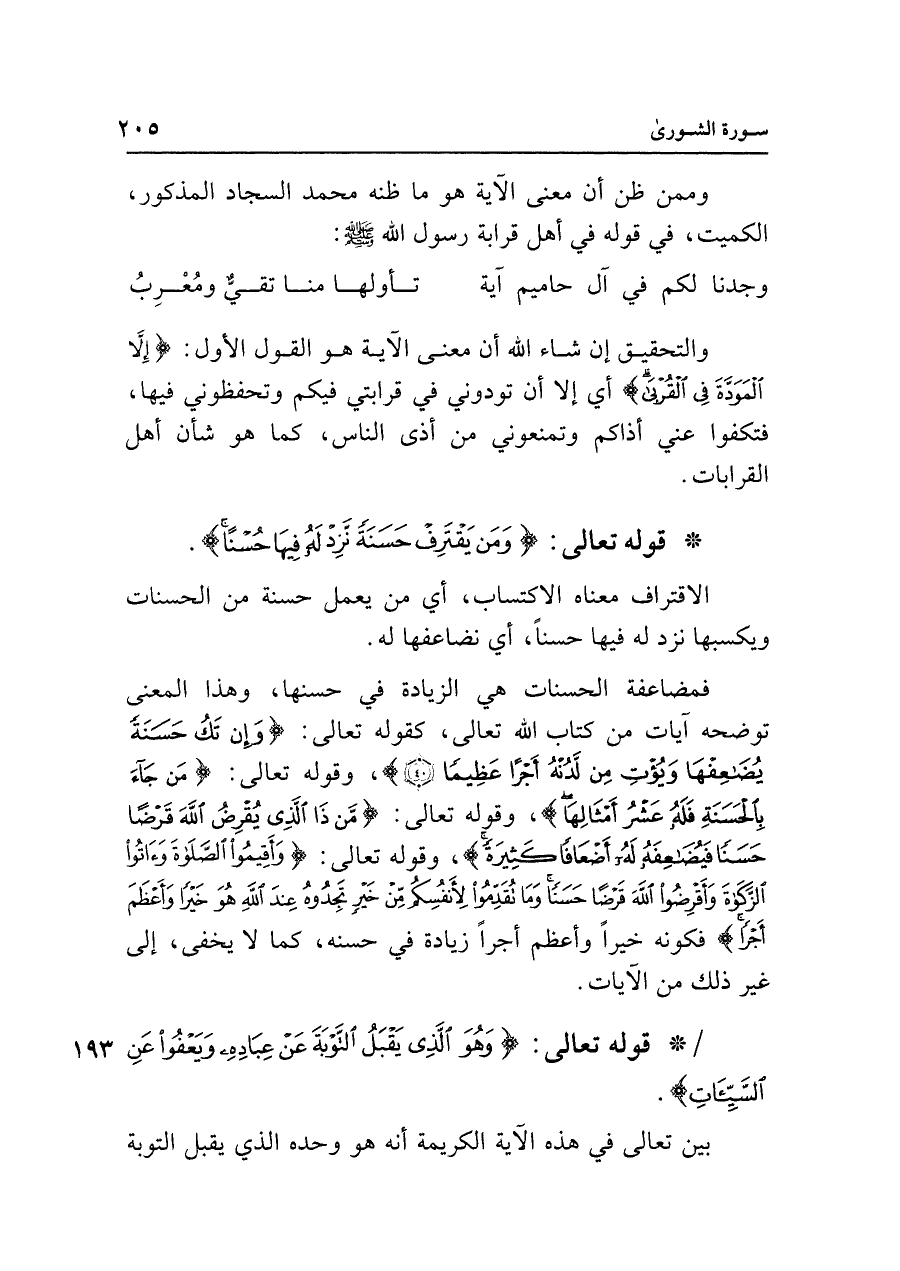 سورة الشورىٰ ٢٠٥
وممن ظن أن معنى الآية هو ما ظنه محمد السجاد المذكور،
الكميت، في قوله في أهل قرابة رسول الله ﷺ:
وجدنا لكم في آل حاميم آية تأولها منا تقيٌّ ومُعْرِبُ
والتحقيق إن شاء الله أن معنى الآية هو القول الأول: ﴿إِلَّا
ٱلْمَوَدَّةَ فِى ٱلْقُرْبَىٰۗ﴾ أي إلا أن تودوني في قرابتي فيكم وتحفظوني فيها،
فتكفوا عني أذاكم وتمنعوني من أذى الناس، كما هو شأن أهل
القرابات.
* قوله تعالى: ﴿وَمَن يَقْتَرِفْ حَسَنَةً نَّزِدْ لَهُۥ فِيهَا حُسْنًاۚ﴾.
الاقتراف معناه الاكتساب، أي من يعمل حسنة من الحسنات
ويكسبها نزد له فيها حسناً، أي نضاعفها له.
فمضاعفة الحسنات هي الزيادة في حسنها، وهذا المعنى
توضحه آيات من كتاب الله تعالى، كقوله تعالى: ﴿وَإِن تَكُ حَسَنَةً
يُضَٰعِفْهَا وَيُؤْتِ مِن لَّدُنْهُ أَجْرًا عَظِيمًا ﴿٤٠﴾﴾، وقوله تعالى: ﴿مَن جَآءَ
بِٱلْحَسَنَةِ فَلَهُۥ عَشْرُ أَمْثَالِهَاۖ﴾، وقوله تعالى: ﴿مَّن ذَا ٱلَّذِى يُقْرِضُ ٱللَّهَ قَرْضًا
حَسَنًا فَيُضَٰعِفَهُۥ لَهُۥٓ أَضْعَافًا كَثِيرَةًۚ﴾، وقوله تعالى: ﴿وَأَقِيمُوا۟ ٱلصَّلَوٰةَ وَءَاتُوا۟
ٱلزَّكَوٰةَ وَأَقْرِضُوا۟ ٱللَّهَ قَرْضًا حَسَنًاۚ وَمَا تُقَدِّمُوا۟ لِأَنفُسِكُم مِّنْ خَيْرٍ تَجِدُوهُ عِندَ ٱللَّهِ هُوَ خَيْرًا وَأَعْظَمَ
أَجْرًاۚ﴾ فكونه خيراً وأعظم أجراً زيادة في حسنه، كما لا يخفى، إلى
غير ذلك من الآيات.
/ * قوله تعالى: ﴿وَهُوَ ٱلَّذِى يَقْبَلُ ٱلتَّوْبَةَ عَنْ عِبَادِهِۦ وَيَعْفُوا۟ عَنِ ١٩٣
ٱلسَّيِّـَٔاتِ﴾.
بين تعالى في هذه الآية الكريمة أنه هو وحده الذي يقبل التوبة